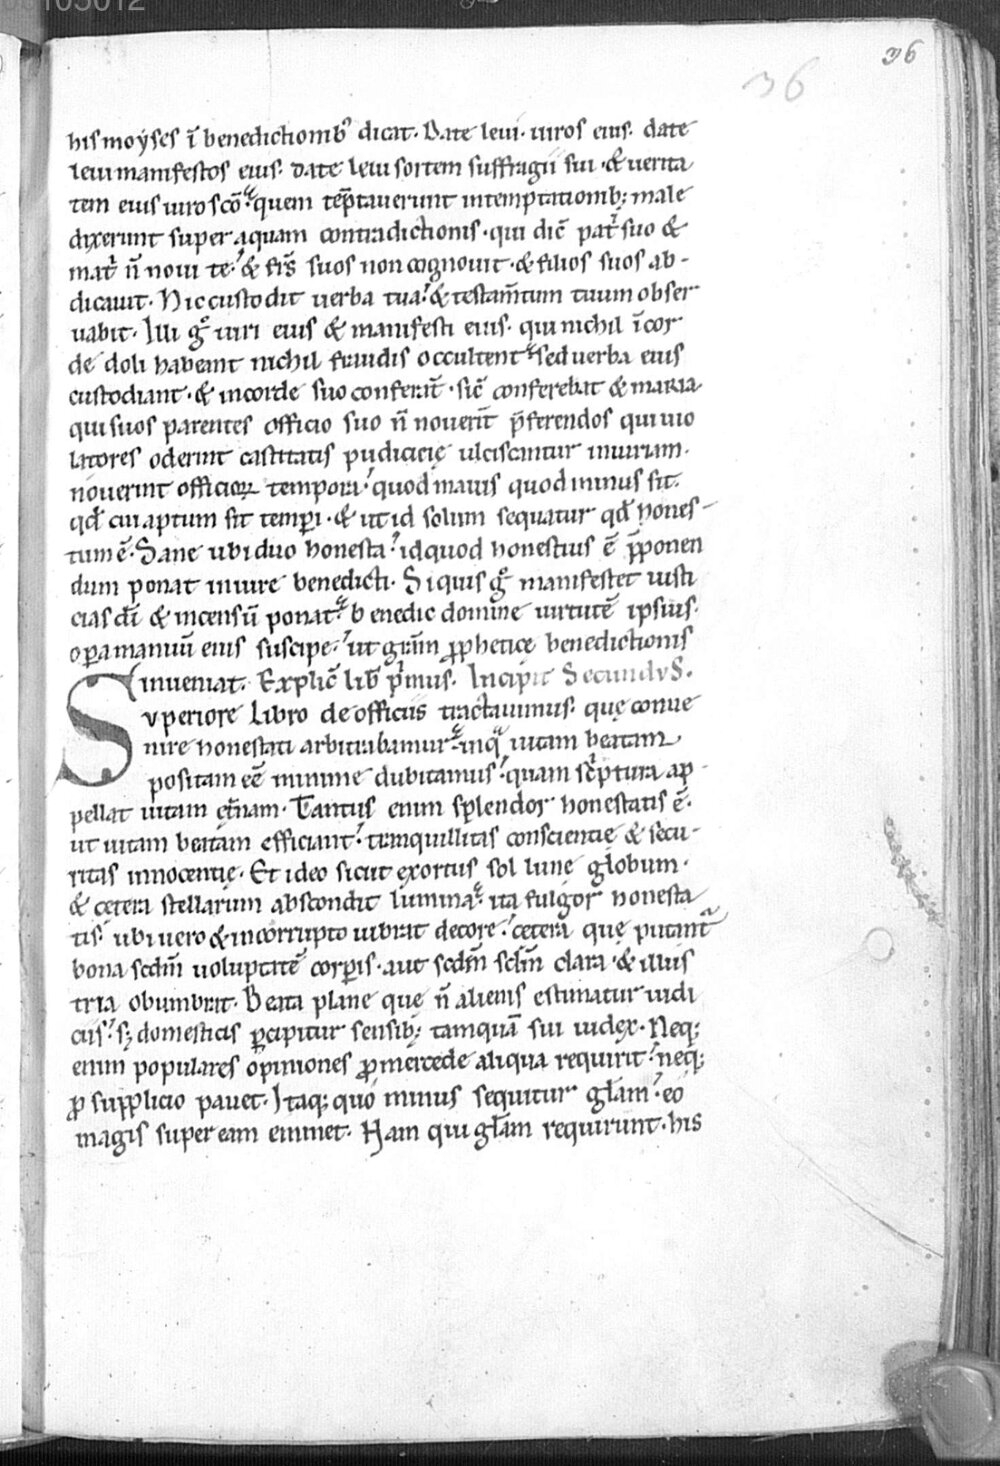 36
36
his moyses ī benedictionib᷒ dicat. Date leui. uiros eius. date
leui manifestos eius. date leui sortem suffragii sui. & uerita
tem eius uiro sc̄o. quem tēptauerunt in temptationib; male
dixerunt super aquam contradictionis. qui dic̄ pat̄ suo &
mat̄ n̄ noui te. & fr̄s suos non cognouit. & filios suos ab-
dicauit. Hic custodit uerba tua. & testam̄tum tuum obser
uabit. Illi gͦ uiri eius & manifesti eius. qui nichil ī cor
de doli habeant nichil fraudis occultent. sed uerba eius
custodiant. & in corde suo conferāt. sic̄ conferebat & maria
qui suos parentes officio suo n̄ nouerīt p̄ferendos qui uio
latores oderint castitatis pudicicię ulciscantur iniuriam.
nouerint officioꝝ tempora. quod maius quod minus sit.
qd̄ cui aptum sit temp̄i. & ut id solum sequatur qd̄ hones-
tum ē. Sane ubi duo honesta. id quod honestius ē p̄ponen
dum ponat in iure benedicti. Si quis gͦ manifestet iusti
cias dī & incensū ponat. benedic domine uirtutē ipsius.
opera manuū eius suscipe. ut grām ꝓphetice benedictionis
inueniat. Explic̄ lib̄ p̄mus. Incipit Secundus.
Superiore libro de officiis tractauimus. quę conue
nire honestati arbitrabamur. in qͣ uitam beatam
positam eē minime dubitamus. quam sc̄ptura ap-
pellat uitam ęt̄nam. Tantus enim splendor honestatis ē.
ut uitam beatam efficiant. tranquillitas conscientię & secu-
ritas innocentię. Et ideo sicut exortus sol lunę globum.
& cętera stellarum abscondit lumina. ita fulgor honesta
tis. ubi uero & incorrupto uibrat decore. cętera quę putant᷑
bona scdm̄ uoluptatē corꝑis. aut scdm̄ sclm̄ clara. & illus
tria obumbrat. Beata plane quę n̄ alienis estimatur iudi
ciis. sꝫ domesticis ꝑcipitur sensib; tamquā sui iudex. Neq;
enim populares opiniones ꝓ mercede aliqua requirit. neq;
ꝓ supplicio pauet. Itaq; quo minus sequitur glām. eo
magis super eam eminet. Nam qui glām requirunt. his